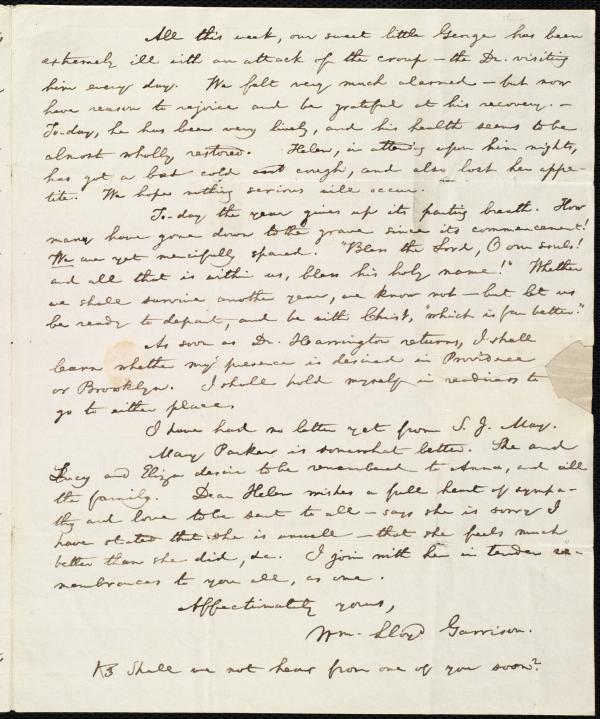 All this week, our sweet little George has been
extremely ill with an attack of the croup — the Dr. visiting
him every day. We felt very much alarmed — but now
have reason to rejoice and be grateful at his recovery. —
To-day, he has been very lively, and his health seems to be
almost wholly restored. Helen, in attending upon him nights,
has got a bad cold and cough, and also lost her appe-
tite. We hope nothing serious will occur.
To-day the year gives up its parting breath. How
many have gone down to the grave since its commencement!
We are yet mercifully spared. "Bless the Lord, O our souls!
and all that is within us, bless his holy name!" Whether
we shall survive another year, we know not — but let us
be ready to depart, and be with Christ, "which is far better."
As soon as Dr. Harrington returns, I shall
learn whether my presence is desired in Providence
or Brooklyn. I shall hold myself in readiness to
go to either place.
I have had no letter yet from S. J. May.
Mary Parker is somewhat better. She and
Lucy and Eliza desire to be remembered to Anna, and all
the family. Dear Helen wishes a full heart of sympa-
thy and love to be sent to all — says she is sorry I
have stated that she is unwell — that she feels much
better than she did, &c. I join with her in tender re-
membrances to you all, as one.
Affectionately yours,
Wm. Lloyd Garrison.
Shall we not hear from one of you soon?